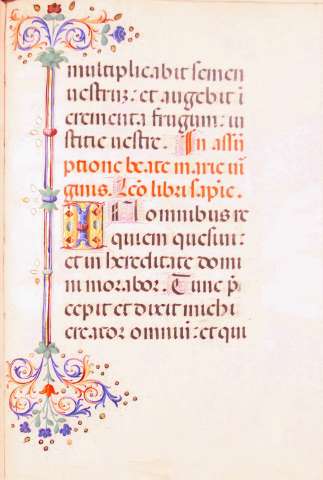 multiplicabit semen
uestruz: et augebit i
crementa frugum: iu
stitie uestre. In assū
ptione beate marie uir
ginis. Lcō libri sapie.
IN omnibus re
quiem quesiui:
et in hereditate domi
ni morabor. Tunc p̄
cepit et dixit michi
creator omnium: et qui